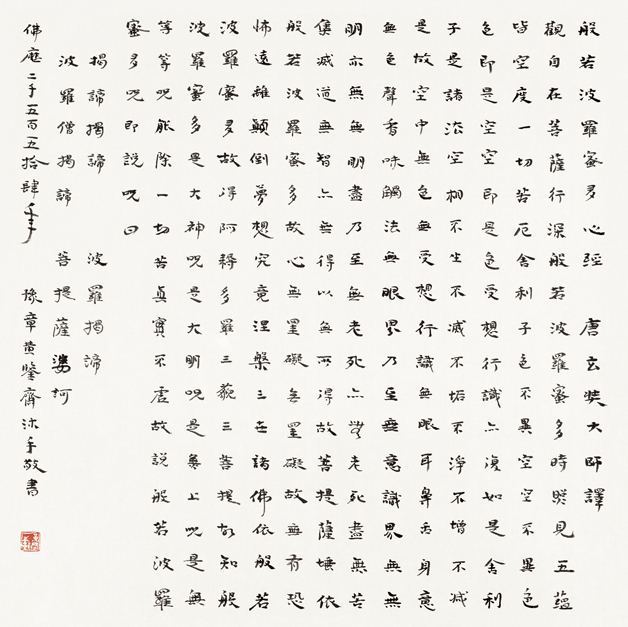 般若波羅蜜多心經 唐玄奘大師譯
觀自在菩薩行深般若波羅蜜多時照見五蘊
皆空度一切苦厄舍利子色不異空空不異色
色即是空空即是色受想行識亦復如是舍利
子是諸法空相不生不滅不垢不淨不增不減
是故空中無色無受想行識無眼耳鼻舌身意
無色聲香味觸法無眼界乃至無意識界無無
明亦無無明盡乃至無老死亦無老死盡無苦
集滅道無智亦無得以無所得故菩提薩埵依
般若波羅蜜多故心無罣礙無罣礙故無有恐
怖遠離顛倒夢想究竟涅槃三世諸佛依般若
波羅蜜多故得阿耨多羅三藐三菩提故知般
波羅蜜多是大神呪是大明呪是無上呪是無
等等呪能除一切苦真實不虛故說般若波羅
蜜多呪即說呪曰
揭諦揭諦 波羅揭諦
波羅僧揭諦 菩提薩婆訶
佛歷二千五百五拾肆年 豫章黃鑒齋沐手敬書